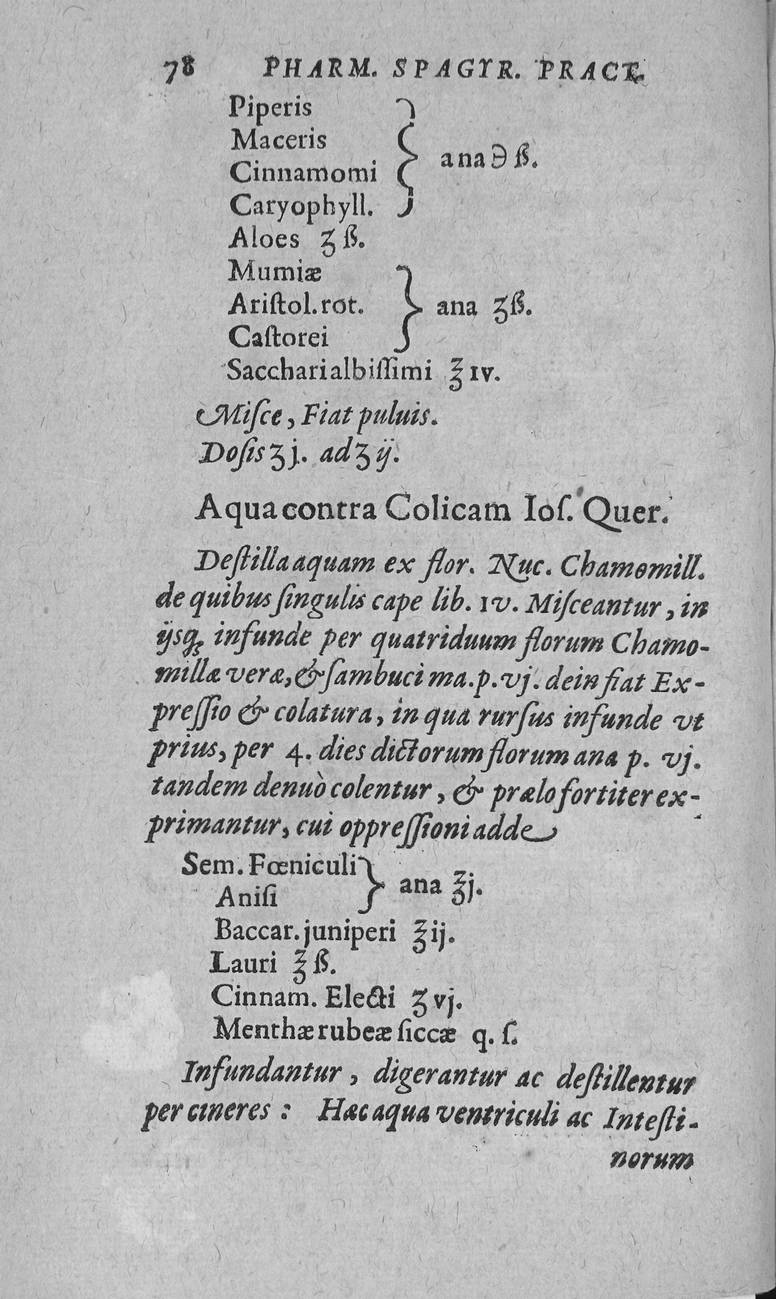 78 PHARM. SPAGYR. PRACT.
Piperis
Maceris
Cinnamomi
Caryophyll.
ana ℈ ß.
Aloes ʒ ß.
Mumiæ
Ariſtol. rot.
Caſtorei
ana ʒß.
Sacchari albiſſimi ℥ IV.
Miſce, Fiat puluis.
Doſis ʒ j. ad ʒ ij.
Aqua contra Colicam Ioſ. Quer.
Deſtilla aquam ex flor. Nuc. Chamomill.
de quibus ſingulis cape lib. IV. Miſceantur, in
ijsq́ꝫ infunde per quatriduum florum Chamo-
millæ veræ, & ſambuci ma. p. vj. dein fiat Ex-
preſſio & colatura, in qua rurſus infunde vt
prius, per 4. dies dictorum florum ana p. vj.
tandem denuò colentur, & prælo fortiter ex-
primantur, cui oppreſſioni adde
Sem. Fœniculi
Aniſi
ana ℥j.
Baccar. juniperi ℥ij.
Lauri ℥ ß.
Cinnam. Electi ʒ vj.
Menthæ rubeæ ſiccæ q. ſ.
Infundantur, digerantur ac deſtillentur
per cineres : Hæc aqua ventriculi ac Inteſti-
norum